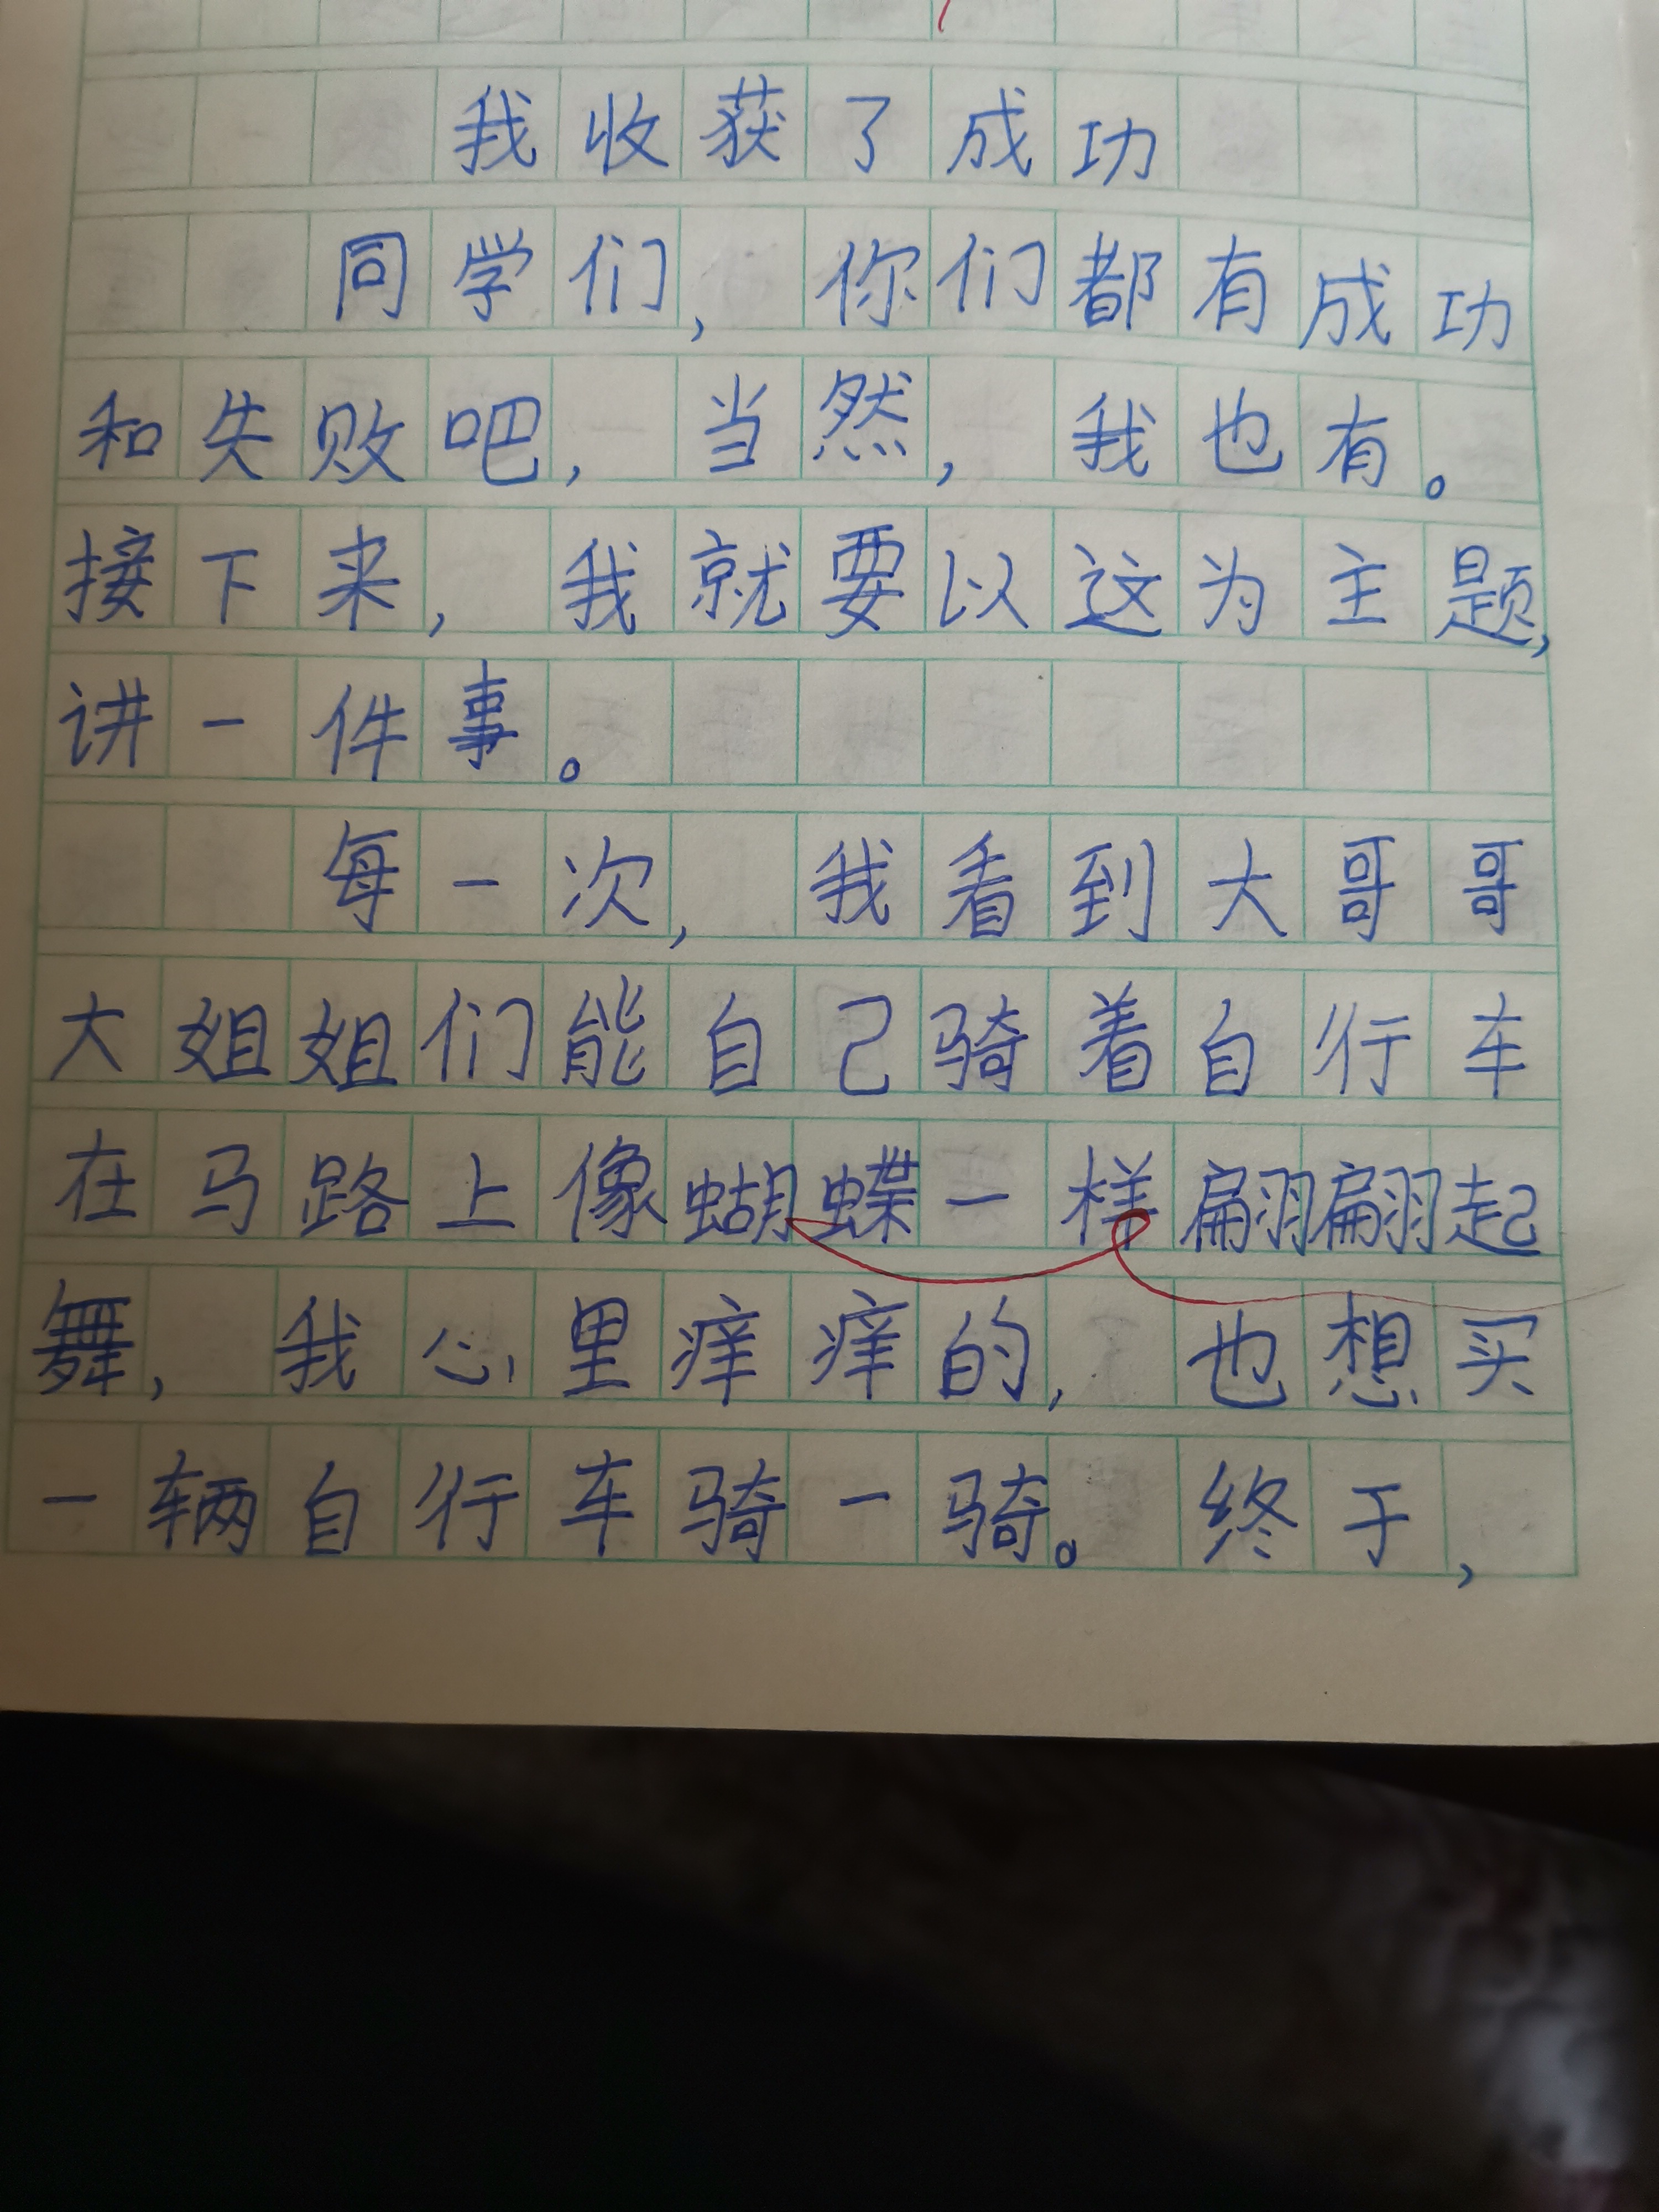 我收获了成功
同学们，你们都有成功
和失败吧，当然，我也有。
接下来，我就要以这为主题，
讲一件事。
每一次，我看到大哥哥
大姐姐们能自己骑着自行车
在马路上像蝴蝶一样翩翩起
舞，我心里痒痒的，也想买
一辆自行车骑一骑。终于，